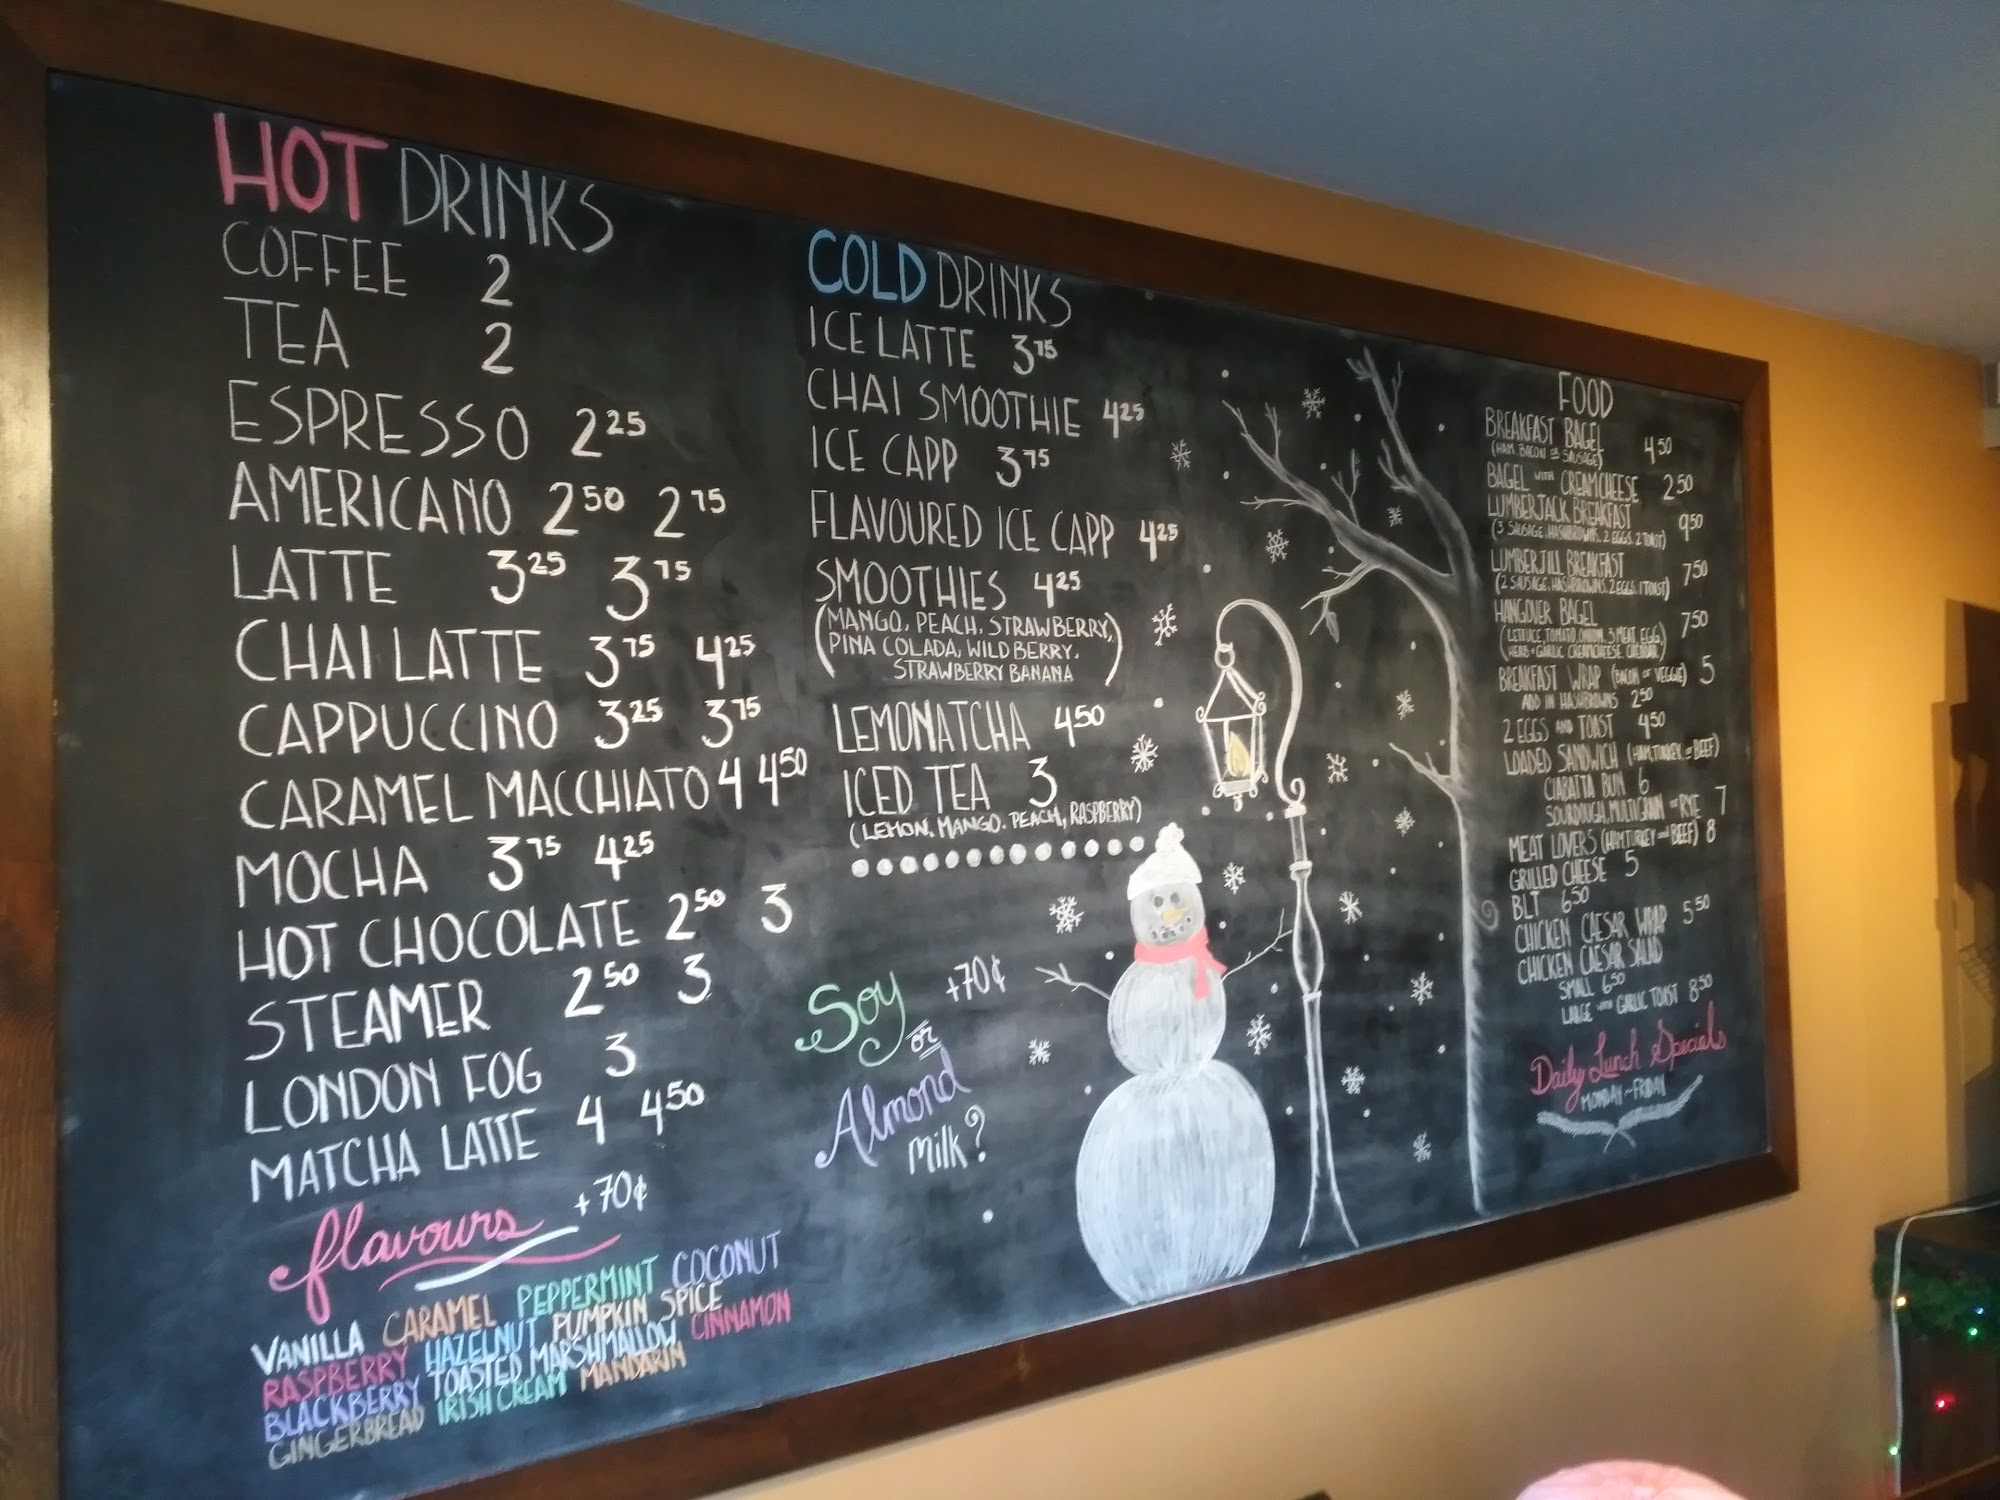 HOT DRINKS
COFFEE 2
TEA 2
ESPRESSO 2 25
AMERICANO 2 50 2 75
LATTE 3 25 3 75
CHAI LATTE 3 75 4 25
CAPPUCCINO 3 25 3 75
CARAMEL MACCHIATO 4 4 50
MOCHA 3 75 4 25
HOT CHOCOLATE 2 50 3
STEAMER 2 50 3
LONDON FOG 3
MATCHA LATTE 4 4 50
flavours +70¢
VANILLA CARAMEL PEPPERMINT COCONUT
RASPBERRY HAZELNUT PUMPKIN SPICE
BLACKBERRY TOASTED MARSHMALLOW CINNAMON
GINGERBREAD IRISH CREAM MANDARIN
COLD DRINKS
ICE LATTE 3 75
CHAI SMOOTHIE 4 25
ICE CAPP 3 75
FLAVOURED ICE CAPP 4 25
SMOOTHIES 4 25
(MANGO, PEACH, STRAWBERRY,
PINA COLADA, WILD BERRY,
STRAWBERRY BANANA)
LEMONATCHA 4 50
ICED TEA 3
(LEMON, MANGO, PEACH, RASPBERRY)
Soy +70¢
or
Almond
Milk?
FOOD
BREAKFAST BAGEL 4 50
(HAM, BACON OR SAUSAGE)
BAGEL WITH CREAMCHEESE 2 50
LUMBERJACK BREAKFAST 9 50
(3 SAUSAGE, HASHBROWNS, 2 EGGS, 2 TOAST)
LUMBERJILL BREAKFAST 7 50
(2 SAUSAGE, HASHBROWNS, 2 EGGS, 1 TOAST)
HANGOVER BAGEL 7 50
(LETTUCE, TOMATO, ONION, 3 MEAT, EGG,
HERB + GARLIC CREAMCHEESE, CHEDDAR)
BREAKFAST WRAP (BACON OR VEGGIE) 5
ADD IN HASHBROWNS 2 50
2 EGGS AND TOAST 4 50
LOADED SANDWICH (HAM, TURKEY, OR BEEF)
CIABATTA BUN 6
SOURDOUGH, MULTIGRAIN OR RYE 7
MEAT LOVERS (HAM, TURKEY AND BEEF) 8
GRILLED CHEESE 5
BLT 6 50
CHICKEN CAESAR WRAP 5 50
CHICKEN CAESAR SALAD
SMALL 6 50
LARGE WITH GARLIC TOAST 8 50
Daily Lunch Specials
MONDAY - FRIDAY